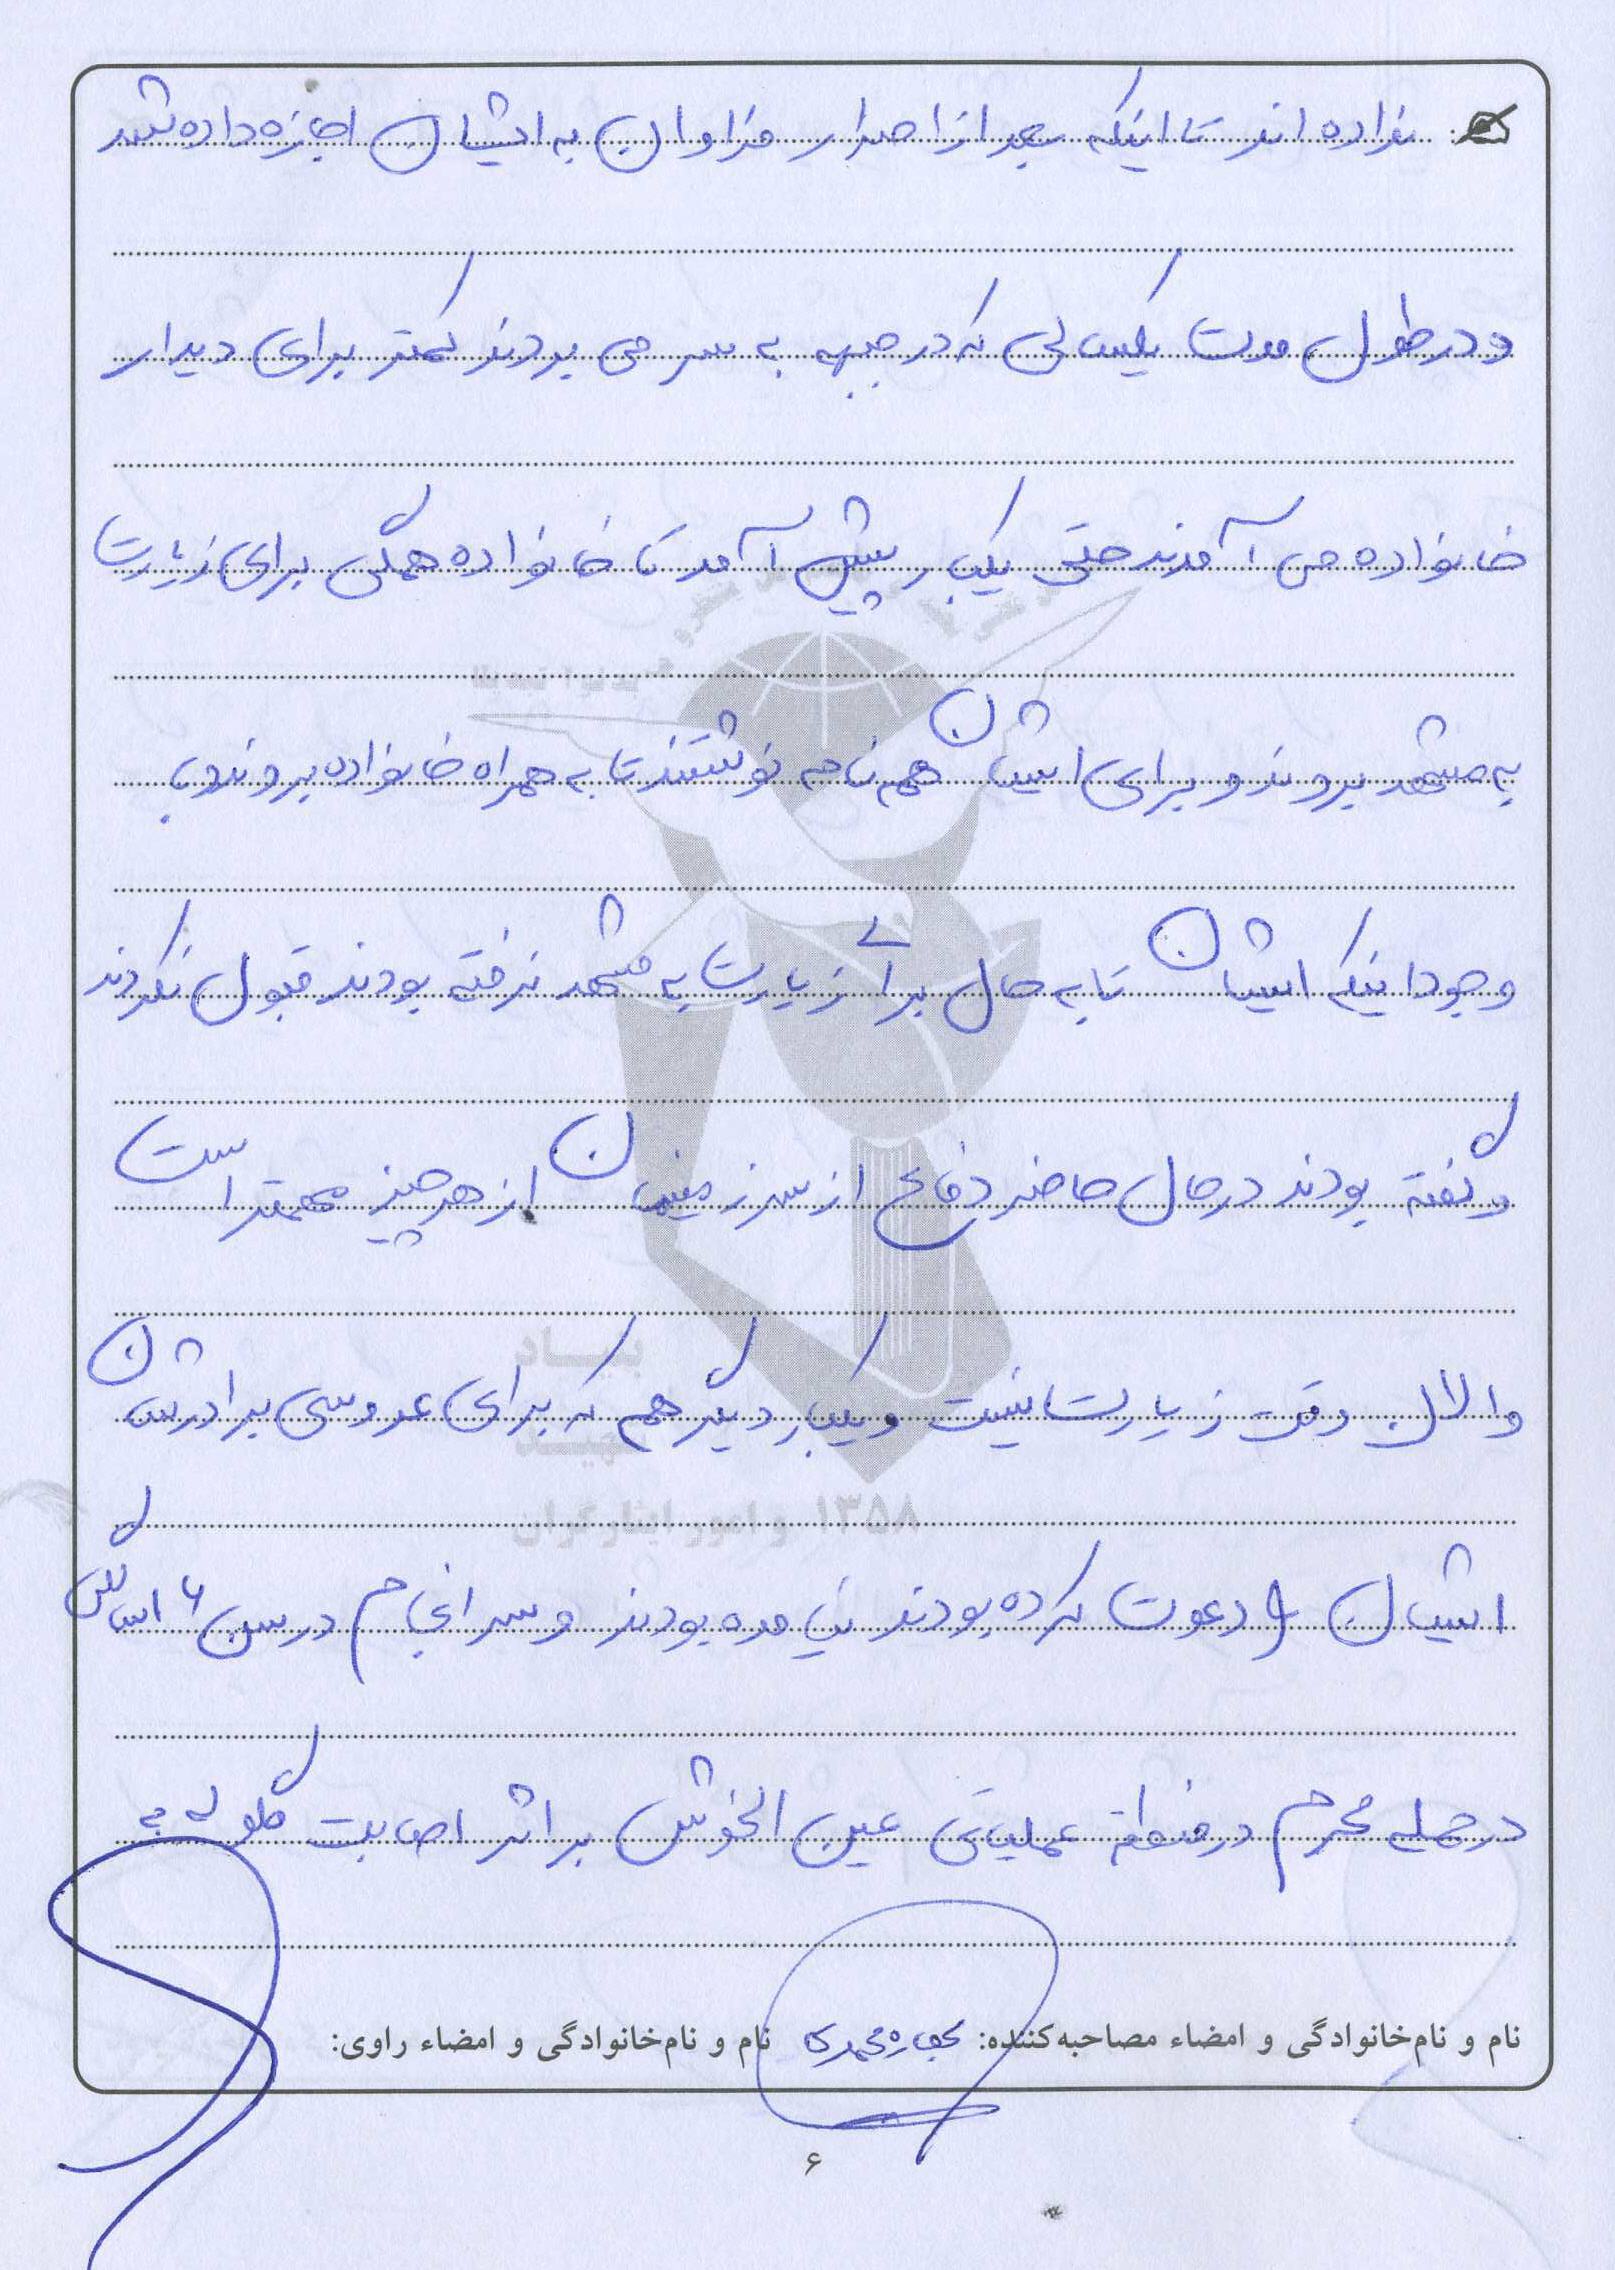 نداده اند تا اینکه بعد از اصرار فراوان به ایشان اجازه داده شد
و در طول مدت یکسالی که در جبهه به سر می بردند کمتر برای دیدار
خانواده می آمدند حتی یکبار پیش آمد تا خانواده همگی برای زیارت
به مشهد بروند و برای ایشان هم نامه نوشتند تا به همراه خانواده بروند و با
وجود اینکه ایشان تا به حال برای زیارت به مشهد نرفته بودند قبول نکردند
و گفته بودند در حال حاضر دفاع از سرزمینمان از هر چیز مهمتر است
و الان وقت زیارت نیست و یکبار دیگر هم که برای عروسی برادرشان
ایشان را دعوت کرده بودند نیامده بودند و سرانجام در سن ۱۶ سالگی
در حمله محرم در منطقه عملیاتی عین الخوش بر اثر اصابت گلوله به
بنیاد
شهید
و امور ایثارگران ۱۳۵۸
نام و نام‌خانوادگی و امضاء مصاحبه‌کننده: نام و نام‌خانوادگی و امضاء راوی:
۶